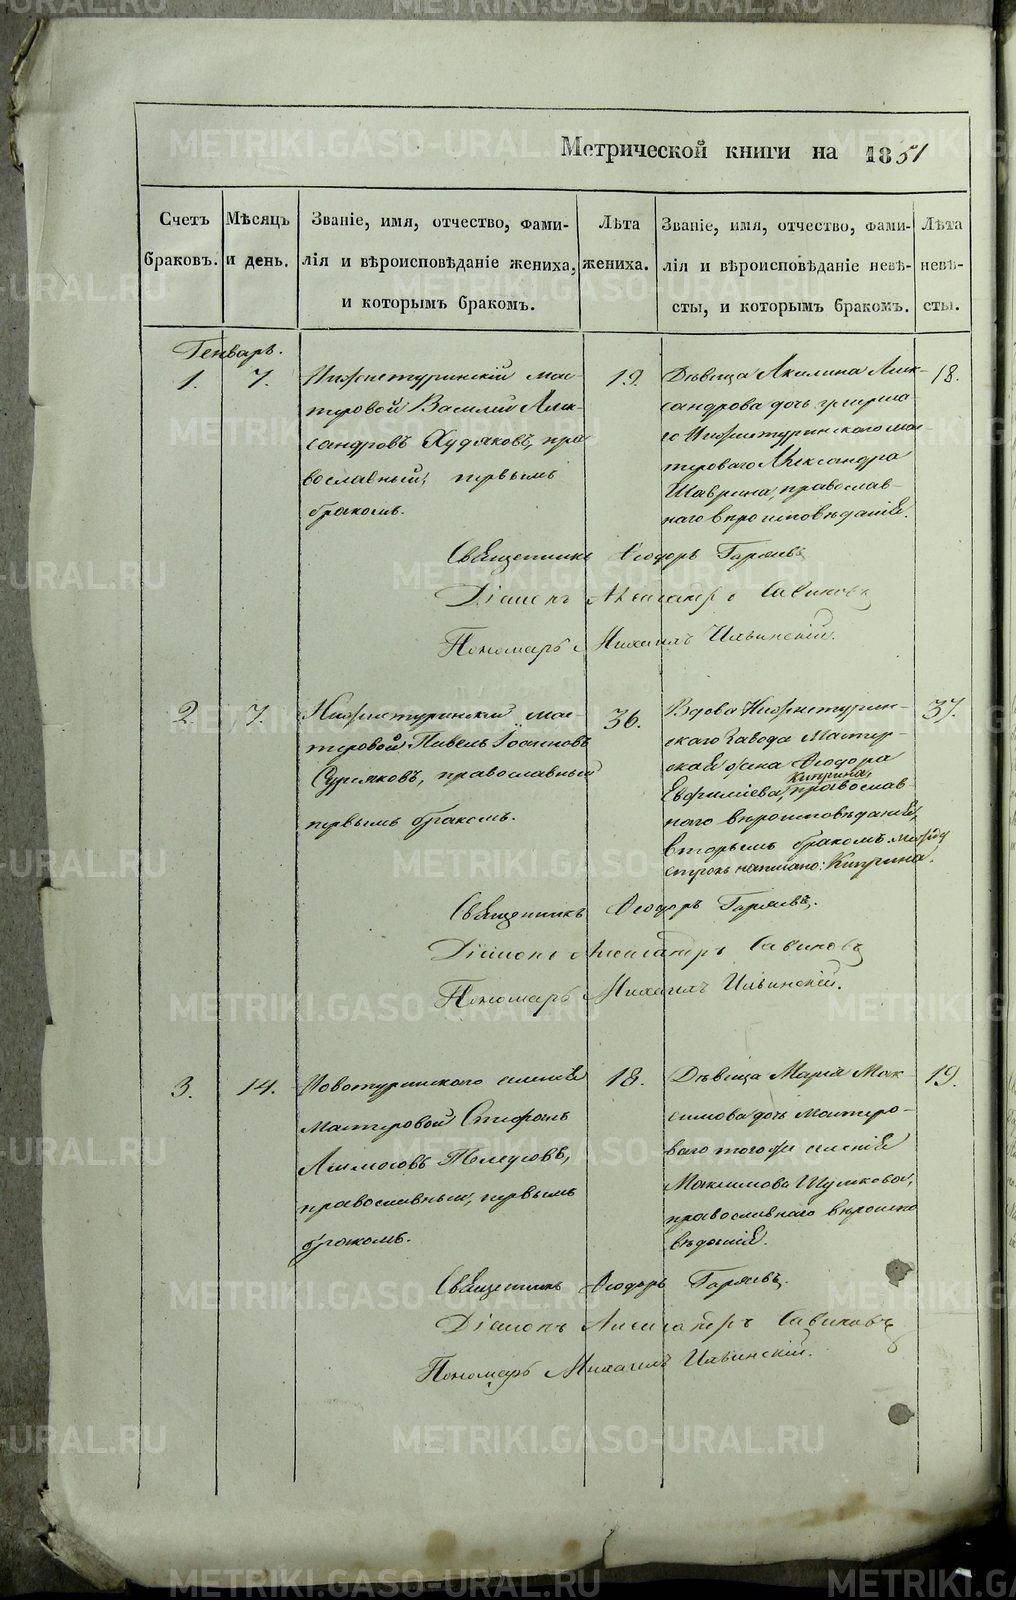 Метрической книги на 1851
Счетъ браковъ.
Мѣсяцъ и день.
Званіе, имя, отчество, фами-
лія и вѣроисповѣданіе жениха,
и которымъ бракомъ.
Лѣта жениха.
Званіе, имя, отчество, фами-
лія и вѣроисповѣданіе невѣ-
сты, и которымъ бракомъ.
Лѣта невѣ-
сты.
Генварь.
1.
7.
Нижнетуринскій мас-
теровой Василій Алек-
сандровъ Худяковъ, пра
вославный, первымъ
бракомъ.
19.
Дѣвица Акилина Алек-
сандрова дочь умерша-
го Нижнетуринскаго мас-
троваго Александра
Шаврина, православ-
наго вѣроисповѣданія.
18.
Священникъ Ѳеодоръ Гаряевъ
Діаконъ Александръ Савиновъ
Пономарь Михаилъ Ильинскій.
2.
7.
Нижнетуринскій мас-
теровой Павелъ Іоанновъ
православный
первымъ бракомъ.
36.
Вдова Нижнетурин-
скаго завода Мастер-
ская жена Ѳеодора
Киприна,
Евфиміева, православ-
наго вѣроисповѣданія,
вторымъ бракомъ. между
строкъ написано: Киприна.
37.
Священникъ Ѳеодоръ Гаряевъ.
Діаконъ Александръ Савиновъ
Пономарь Михаилъ Ильинскій.
3.
14.
Новотуринского селенія
Мастеровой Стефанъ
православный, первымъ
бракомъ.
18.
Дѣвица Марія Мак-
симова дочь мастеро-
ваго того же селенія
Максимова Шумкова,
православнаго вѣроиспо
вѣданія.
19.
Священникъ Ѳеодоръ Гаряевъ.
Діаконъ Александръ Савиновъ
Пономарь Михаилъ Ильинскій.
METRIKI.GASO-URAL.RU